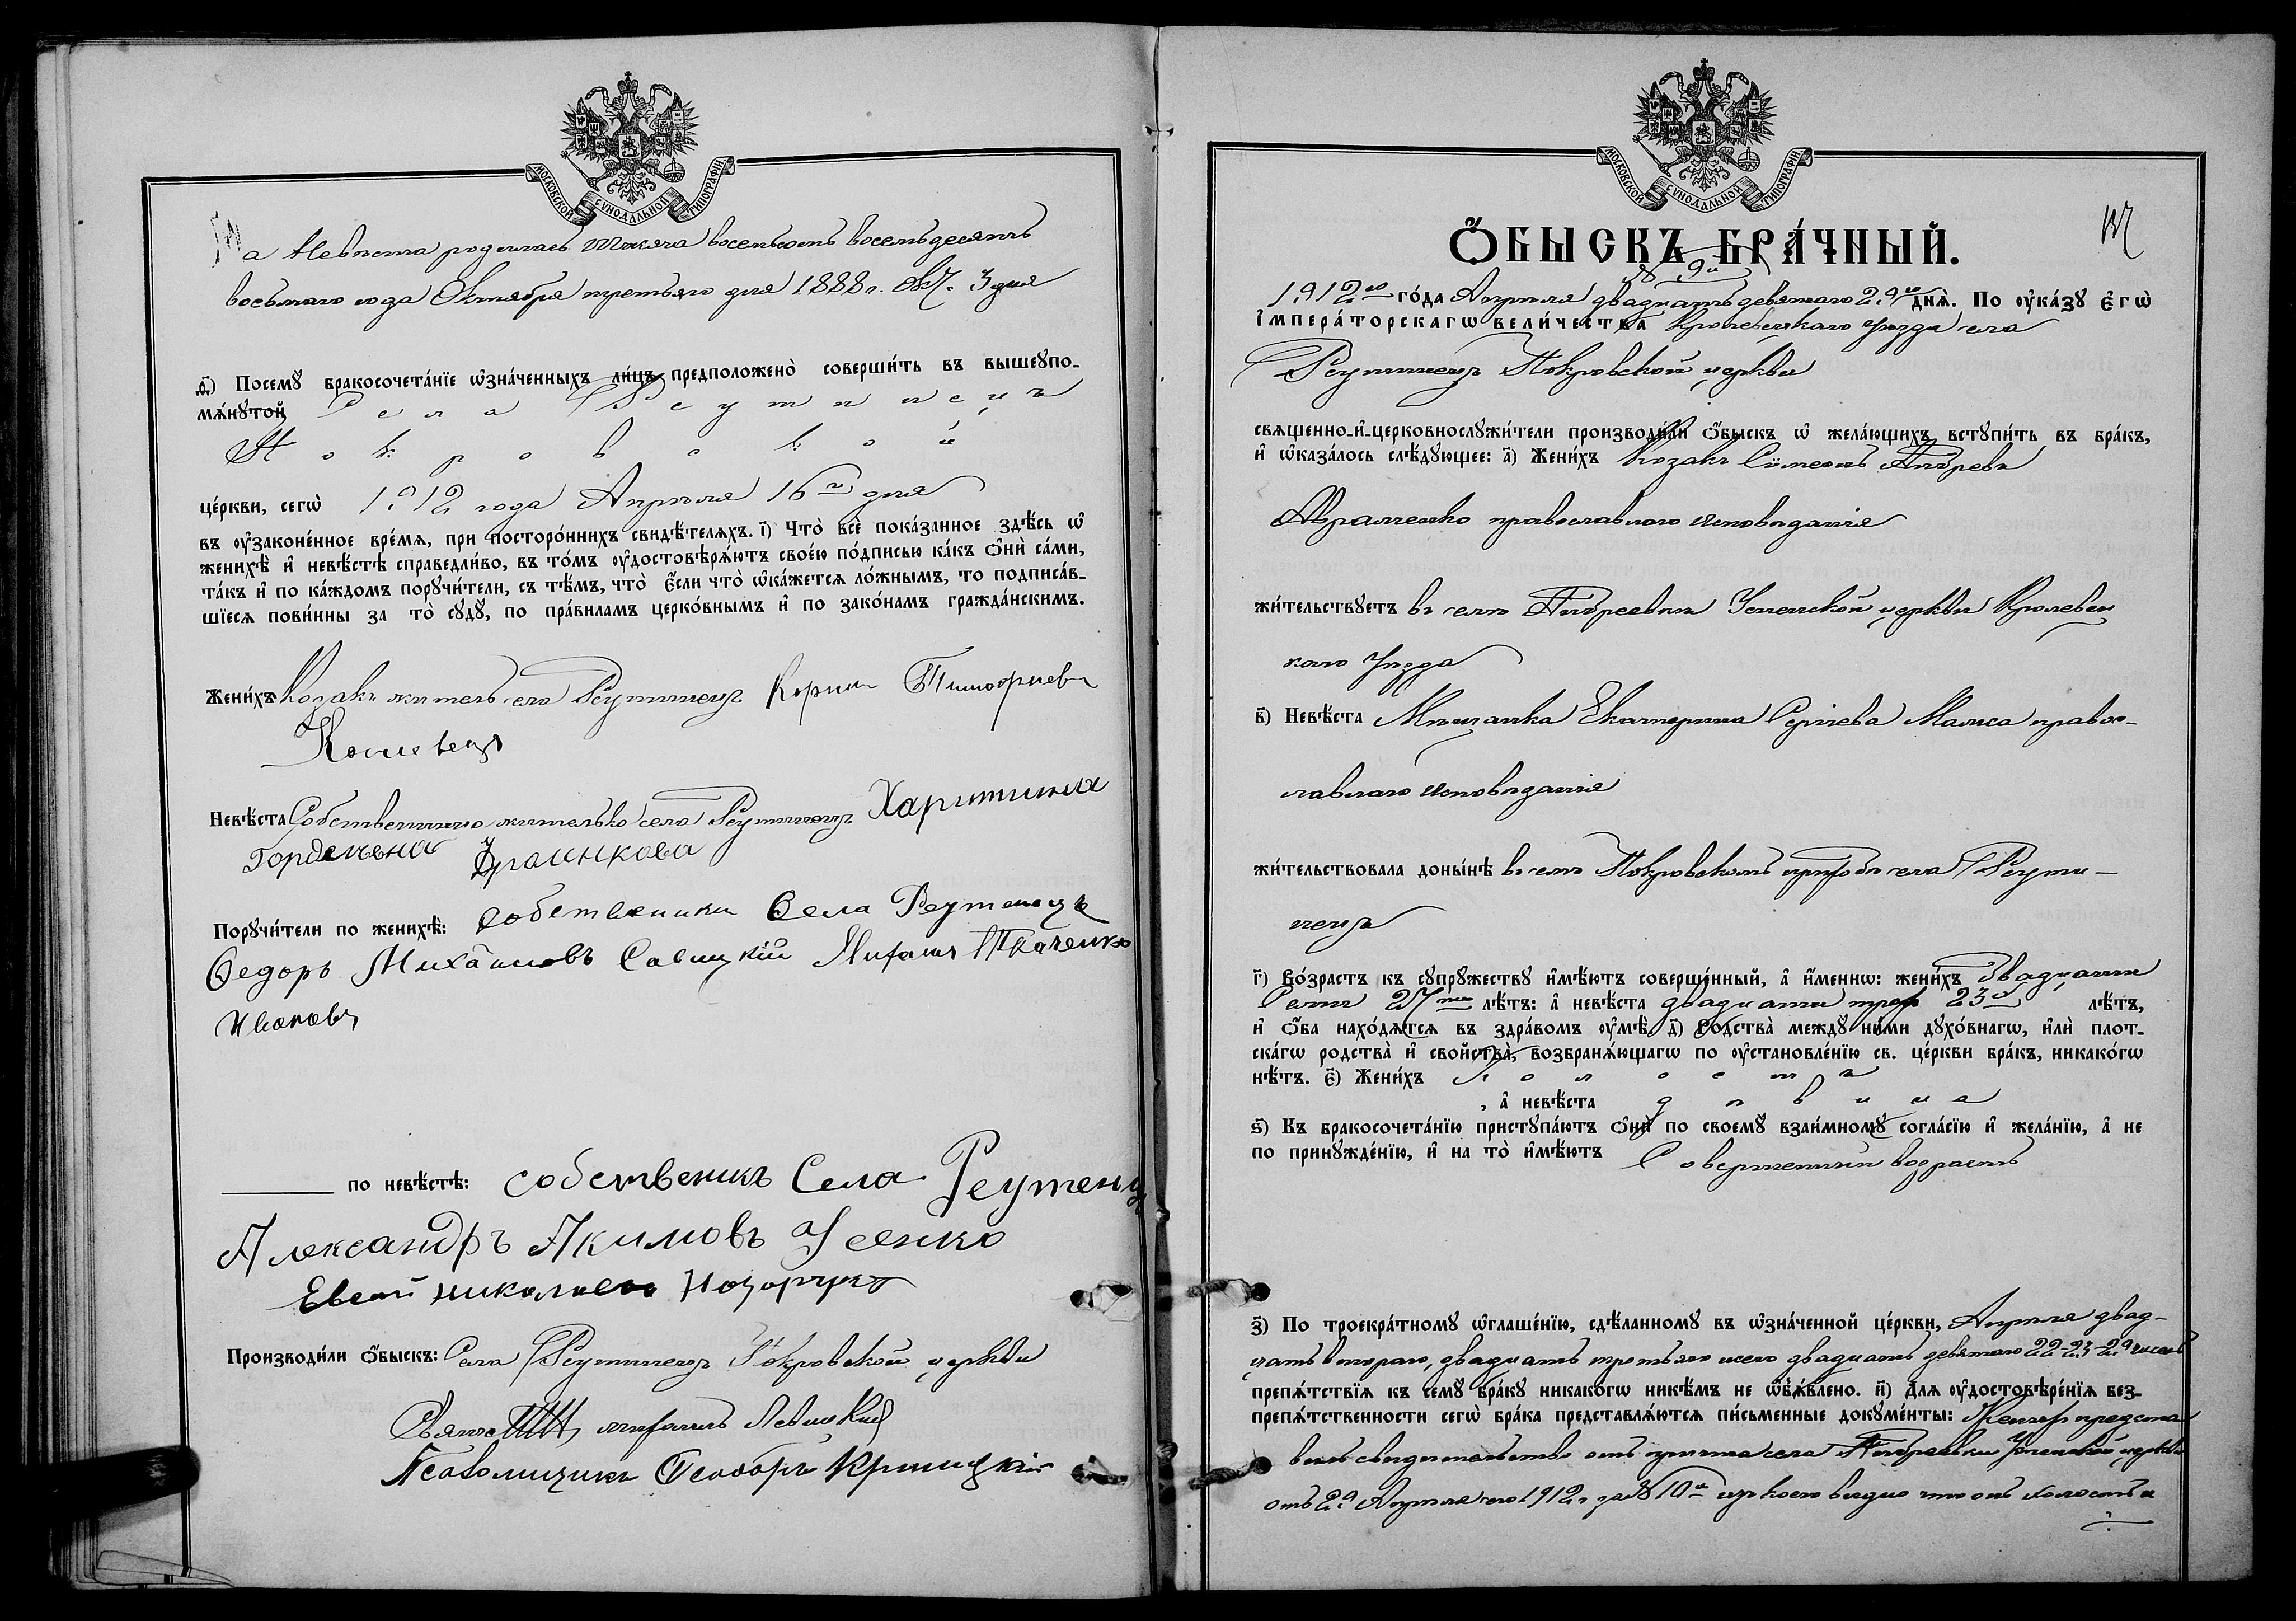 МОСКОВСКОЙ СѴНОДАЛЬНОЙ ТИПОГРАФІИ
а Невѣста родилась тысяча восемьсотъ восемьдесятъ
восьмаго года Октября третьяго дня 1888 г. Окт. 3 дня
ѳ҃) Посемꙋ бракосочета́нїе ѡзна́ченныхъ ли́цъ предположено̀ соверши́ть въ вышеꙋпо-
мѧ́нꙋтой Села Реутинецъ
Покровской
це́ркви, сегѡ̀ 1912 года Апрѣля 16го дня
въ ᲂу҆законе́нное вре́мѧ, при посторо́ннихъ свидѣ́телѧхъ. і҃) Что̀ всѐ пока́занное здѣ́сь ѡ҆
женихѣ̀ и҆ невѣ́стѣ справедли́во, въ то́мъ ᲂу҆достовѣрѧ́ютъ свое́ю по́дписью ка́къ ѻ҆нѝ са́ми,
та́къ и҆ по ка́ждомъ порꙋчи́тели, съ тѣ́мъ, что̀ є҆́сли что̀ ѡ҆ка́жетсѧ ло́жнымъ, то подписа́в-
шїесѧ пови́нны за то̀ сꙋдꙋ̀, по пра́виламъ церко́внымъ и҆ по зако́намъ гражда́нскимъ.
Жени́хъ Козакъ житель села Реутинецъ Корнил Тимофиевъ
Кошевецъ
Невѣ́ста Собственница жителька села Реутинецъ Харитина
Гордеевна
Порꙋчи́тели по женихѣ̀: собственики Села Реутенецъ
Федоръ Михайловъ Савицкій Михаил Ткаченко
Ивановъ
по невѣ́стѣ: собственикъ Села Реутенец
Александръ Акимовъ Усенко
Евсей николаевъ
Производи́ли ѻ҆́быскъ: Села Реутинецъ Покровской церкви
Священникъ михаилъ Левицкій
Псаломщикъ Феодоръ Криницкій
МОСКОВСКОЙ СѴНОДАЛЬНОЙ ТИПОГРАФІИ
Ѻ҆́БЫСКЪ БРА́ЧНЫЙ.
137
№ 9й
1912го го́да Апрѣля двадцать девятаго 29го днѧ̀. По ᲂу҆ка́зꙋ є҆гѡ̀
і҆мпера́торскагѡ вели́чества Кролевецкаго уѣзда села
Реутинецъ Покровской церкви
свѧщенно-и҆-церковнослꙋжи́тели производи́ли ѻ҆́быскъ ѡ҆ жела́ющихъ встꙋпи́ть въ бра́къ,
и҆ ѡ҆каза́лось слѣ́дꙋющее: а҃) Жени́хъ Козакъ Симеонъ Андреевъ
Авраменко православнаго исповѣданія
жи́тельствꙋетъ въ селѣ Андреевкѣ Успенской церкви Кролевец
каго уѣзда
в҃) Невѣ́ста Мѣщанка Екатерина Сергіева правос-
лавнаго исповѣданія
жи́тельствовала доны́нѣ въ семъ Покровскомъ приходѣ села Реути-
нецъ
г҃) Во́зрастъ къ сꙋпрꙋ́жествꙋ и҆мѣ́ютъ соверше́нный, а҆ и҆́меннѡ: жени́хъ Двадцати
Семи 27ми лѣ́тъ: а҆ невѣ́ста двадцати трехъ 23хъ лѣ́тъ,
и҆ ѻ҆́ба нахо́дѧтсѧ въ здра́вомъ ᲂу҆мѣ̀ д҃) Родства̀ междꙋ̀ ни́ми дꙋхо́внагѡ, и҆лѝ плот-
ска́гѡ родства̀ и҆ свойства̀, возбранѧ́ющагѡ по ᲂу҆становле́нїю св. це́ркви бра́къ, никако́гѡ
нѣ́тъ. є҃) Жени́хъ холостъ
, а҆ невѣ́ста дѣвица
ѕ҃) Къ бракосочета́нїю пристꙋпа́ютъ ѻ҆нѝ по своемꙋ̀ взаи́мномꙋ согла́сїю и҆ жела́нїю, а҆ не
по принꙋжде́нїю, и҆ на то̀ и҆мѣ́ютъ Совершенный возрастъ
з҃) По троекра́тномꙋ ѡ҆глаше́нїю, сдѣ́ланномꙋ въ ѡ҆зна́ченной це́ркви, Апрѣля двад-
цать втораго, двадцать третьяго и двадцать девятаго 22-23-29 числъ
препѧ́тствїѧ къ семꙋ̀ бра́кꙋ никако́гѡ никѣ́мъ не ѡ҆б̾ѧ́влено. и҃) Длѧ ᲂу҆достовѣре́нїѧ без-
препѧ́тственности сегѡ̀ бра́ка представлѧ́ютсѧ пи́сьменные докꙋме́нты: Женихъ предста
вилъ свидѣтельство отъ причта села Андреевки Успенской церкви
отъ 29 Апрѣля сего 1912 г. за № 10й изъ коего видно что онъ холостъ и